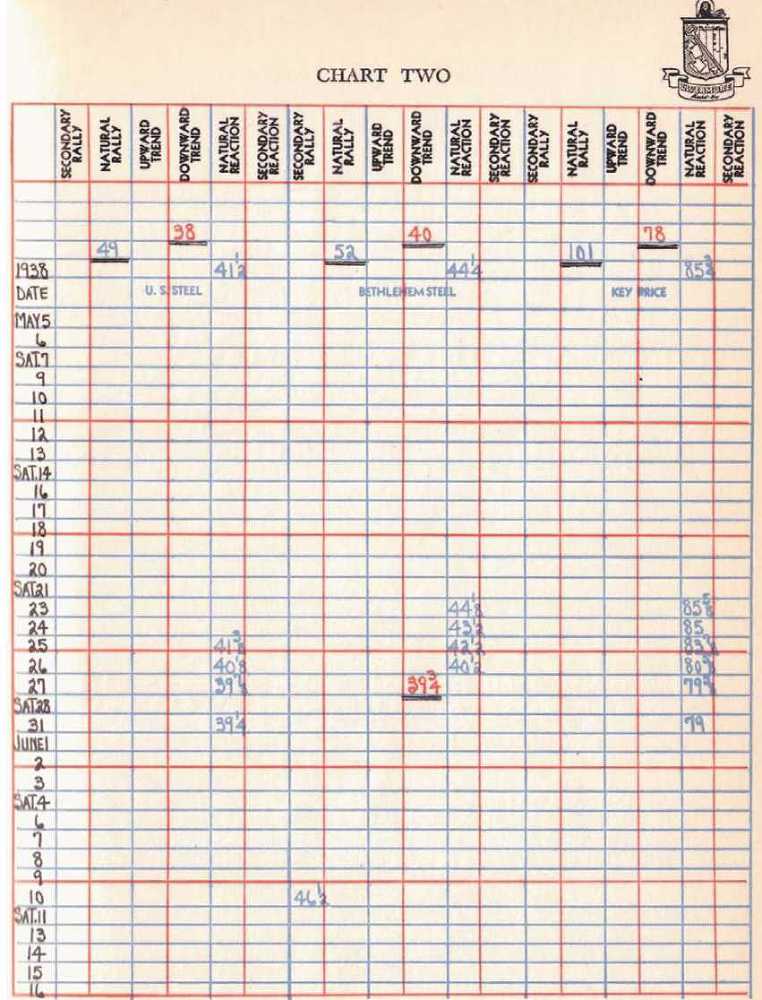 LIVERMORE
CHART TWO
SECONDARY RALLY NATURAL RALLY UPWARD TREND DOWNWARD TREND NATURAL REACTION SECONDARY REACTION SECONDARY RALLY NATURAL RALLY UPWARD TREND DOWNWARD TREND NATURAL REACTION SECONDARY REACTION SECONDARY RALLY NATURAL RALLY UPWARD TREND DOWNWARD TREND NATURAL REACTION SECONDARY REACTION
38 40 78
49 52 101
1938 41½ 44¼ 85¾
DATE U. S. STEEL BETHLEHEM STEEL KEY PRICE
MAY 5
6
SAT.7
9
10
11
12
13
SAT.14
16
17
18
19
20
SAT.21
23 44⅛ 85⅝
24 43½ 85
25 41⅜ 42½
26 40⅛ 40½
27 39⅞ 39¾ 79⅝
SAT.28
31 39¼ 79
JUNE 1
2
3
SAT.4
6
7
8
9
10 46½
SAT.11
13
14
15
16